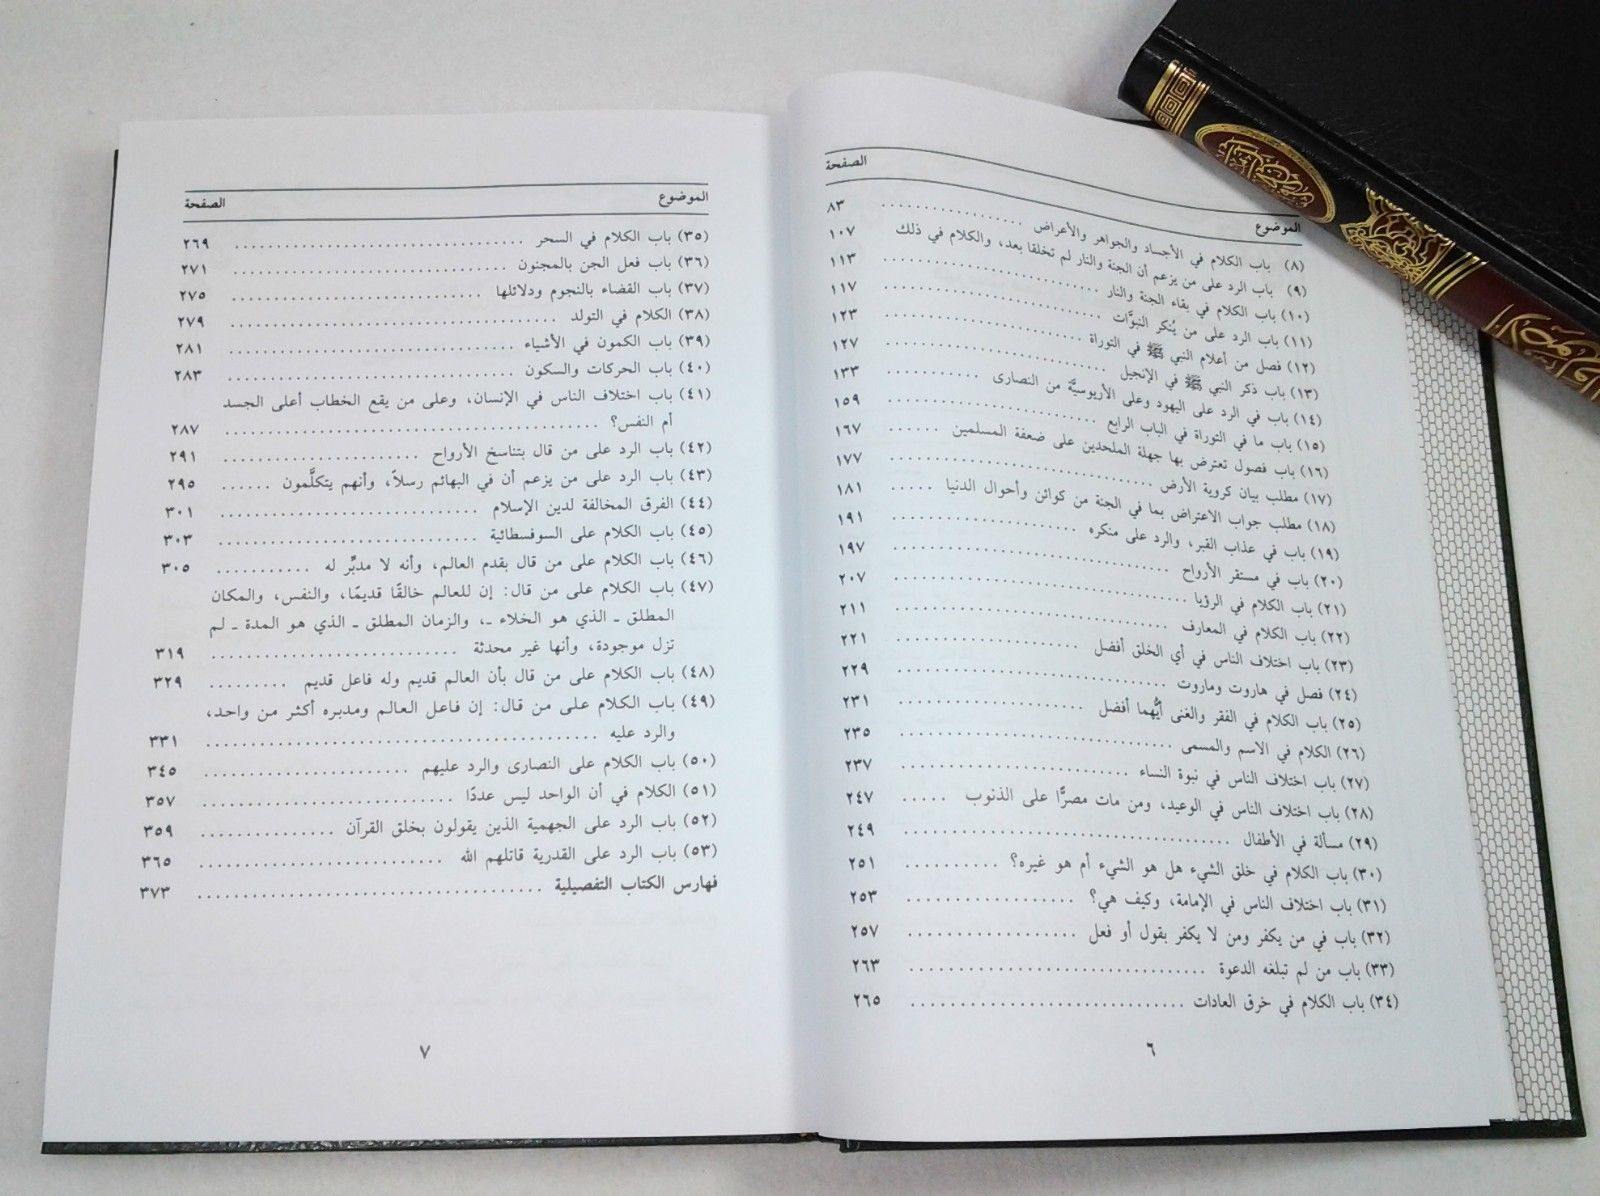 الموضوع الصفحة
(٨) باب الكلام في الأجساد والجواهر والأعراض ..................... ٨٣
(٩) باب الرد على من يزعم أن الجنة والنار لم تخلقا بعد، والكلام في ذلك ١٠٧
(١٠) باب الكلام في بقاء الجنة والنار ..................... ١١٣
(١١) باب الرد على من يُنكر النبوَّات ..................... ١١٧
(١٢) فصل من أعلام النبي ﷺ في التوراة ..................... ١٢٣
(١٣) باب ذكر النبي ﷺ في الإنجيل ..................... ١٢٧
(١٤) باب في الرد على اليهود وعلى الأريوسيَّة من النصارى ............ ١٣٣
(١٥) باب ما في التوراة في الباب الرابع ..................... ١٥٩
(١٦) باب فصول تعترض بها جهلة الملحدين على ضعفة المسلمين ....... ١٦٧
(١٧) مطلب بيان كروية الأرض ..................... ١٧٧
(١٨) مطلب جواب الاعتراض بما في الجنة من كوائن وأحوال الدنيا ..... ١٨١
(١٩) باب في عذاب القبر، والرد على منكره ..................... ١٩١
(٢٠) باب في مستقر الأرواح ..................... ١٩٧
(٢١) باب الكلام في الرؤيا ..................... ٢٠٧
(٢٢) باب الكلام في المعارف ..................... ٢١١
(٢٣) باب اختلاف الناس في أي الخلق أفضل ..................... ٢٢١
(٢٤) فصل في هاروت وماروت ..................... ٢٢٩
(٢٥) باب الكلام في الفقر والغنى أيُّهما أفضل ..................... ٢٣١
(٢٦) الكلام في الاسم والمسمى ..................... ٢٣٥
(٢٧) باب اختلاف الناس في نبوة النساء ..................... ٢٣٧
(٢٨) باب اختلاف الناس في الوعيد، ومن مات مصرًّا على الذنوب ..... ٢٤٧
(٢٩) مسألة في الأطفال ..................... ٢٤٩
(٣٠) باب الكلام في خلق الشيء هل هو الشيء أم هو غيره؟ .......... ٢٥١
(٣١) باب اختلاف الناس في الإمامة، وكيف هي؟ ................. ٢٥٣
(٣٢) باب في من يكفر ومن لا يكفر بقول أو فعل ................. ٢٥٧
(٣٣) باب من لم تبلغه الدعوة ..................... ٢٦٣
(٣٤) باب الكلام في خرق العادات ..................... ٢٦٥
٦
الموضوع الصفحة
(٣٥) باب الكلام في السحر ..................... ٢٦٩
(٣٦) باب فعل الجن بالمجنون ..................... ٢٧١
(٣٧) باب القضاء بالنجوم ودلائلها ..................... ٢٧٥
(٣٨) الكلام في التولد ..................... ٢٧٩
(٣٩) باب الكمون في الأشياء ..................... ٢٨١
(٤٠) باب الحركات والسكون ..................... ٢٨٣
(٤١) باب اختلاف الناس في الإنسان، وعلى من يقع الخطاب أعلى الجسد
أم النفس؟ ..................... ٢٨٧
(٤٢) باب الرد على من قال بتناسخ الأرواح ..................... ٢٩١
(٤٣) باب الرد على من يزعم أن في البهائم رسلاً، وأنهم يتكلَّمون ...... ٢٩٥
(٤٤) الفرق المخالفة لدين الإسلام ..................... ٣٠١
(٤٥) باب الكلام على السوفسطائية ..................... ٣٠٣
(٤٦) باب الكلام على من قال بقدم العالم، وأنه لا مدبِّر له ........... ٣٠٥
(٤٧) باب الكلام على من قال: إن للعالم خالقًا قديمًا، والنفس، والمكان
المطلق ـ الذي هو الخلاء ـ، والزمان المطلق ـ الذي هو المدة ـ لم
تزل موجودة، وأنها غير محدثة ..................... ٣١٩
(٤٨) باب الكلام على من قال بأن العالم قديم وله فاعل قديم ......... ٣٢٩
(٤٩) باب الكلام على من قال: إن فاعل العالم ومدبره أكثر من واحد،
والرد عليه ..................... ٣٣١
(٥٠) باب الكلام على النصارى والرد عليهم ..................... ٣٤٥
(٥١) الكلام في أن الواحد ليس عددًا ..................... ٣٥٧
(٥٢) باب الرد على الجهمية الذين يقولون بخلق القرآن .............. ٣٥٩
(٥٣) باب الرد على القدرية قاتلهم الله ..................... ٣٦٥
فهارس الكتاب التفصيلية ..................... ٣٧٣
٧